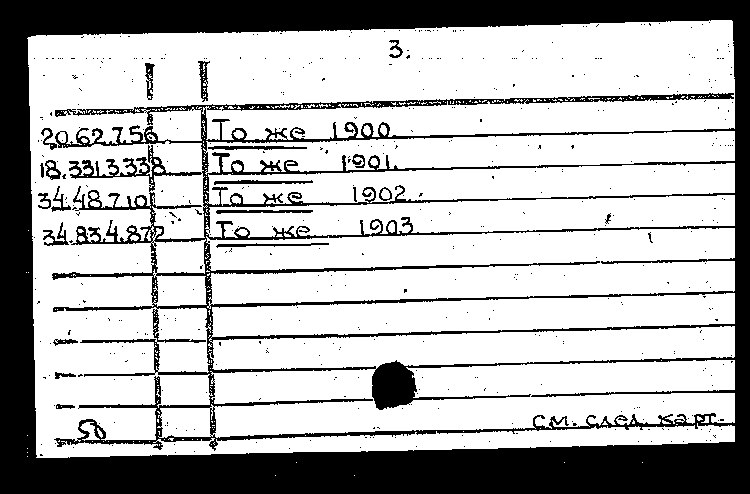 3.
20.62.7.56 То же 1900.
18.331.3.338 То же 1901.
34.48.7.101 То же 1902.
34.83.4.872 То же 1903
50
см. след. карт.